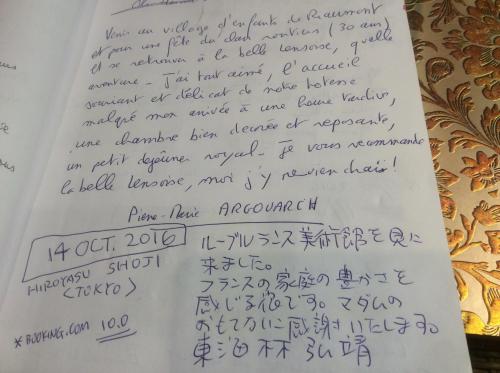 Venir au village d'enfants de Riaumont
et pour une fête du clan (30 ans)
et se retrouver à la belle lensoise, quelle
aventure - J'ai tout aimé, l'accueil
souriant et délicat de notre hotesse
malgré mon arrivée à une heure tardive,
une chambre bien décorée et reposante,
un petit déjeuner royal - Je vous recommande
la belle lensoise, moi j'y reviendrai !
Pierre-Marie ARGOUARCH
14 OCT. 2016
HIROYASU SHOJI
<TOKYO>
* BOOKING.COM 10.0
ルーブルランス美術館を見に
来ました。
フランスの家庭の豊かさを
感じる宿です。マダムの
おもてなしに感謝いたします。
東海林 弘靖